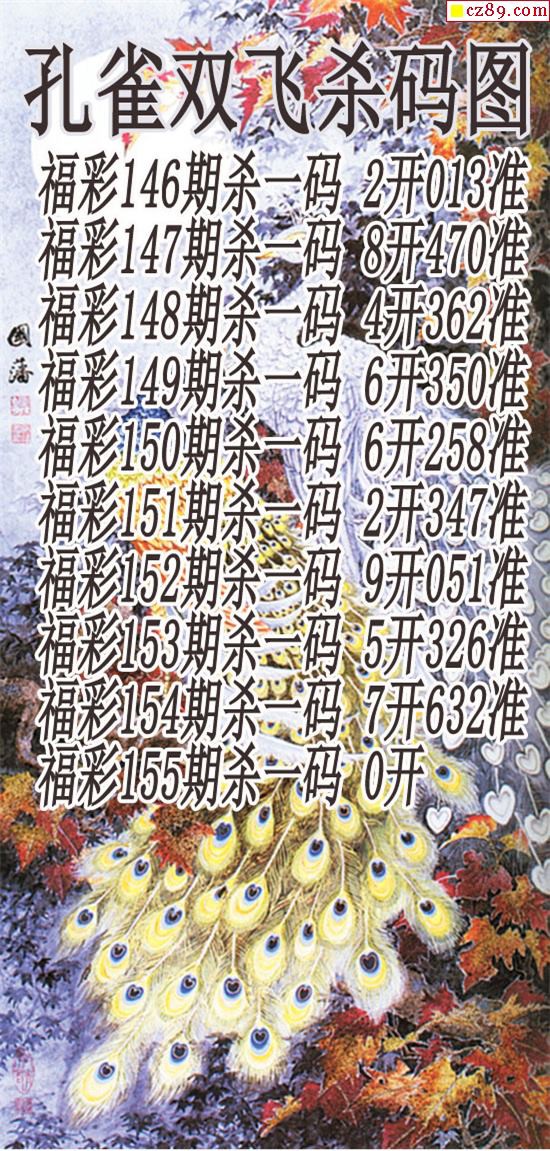 cz89.com
孔雀双飞杀码图
福彩146期杀一码 2开013准
福彩147期杀一码 8开470准
福彩148期杀一码 4开362准
福彩149期杀一码 6开350准
福彩150期杀一码 6开258准
福彩151期杀一码 2开347准
福彩152期杀一码 9开051准
福彩153期杀一码 5开326准
福彩154期杀一码 7开632准
福彩155期杀一码 0开
國藩